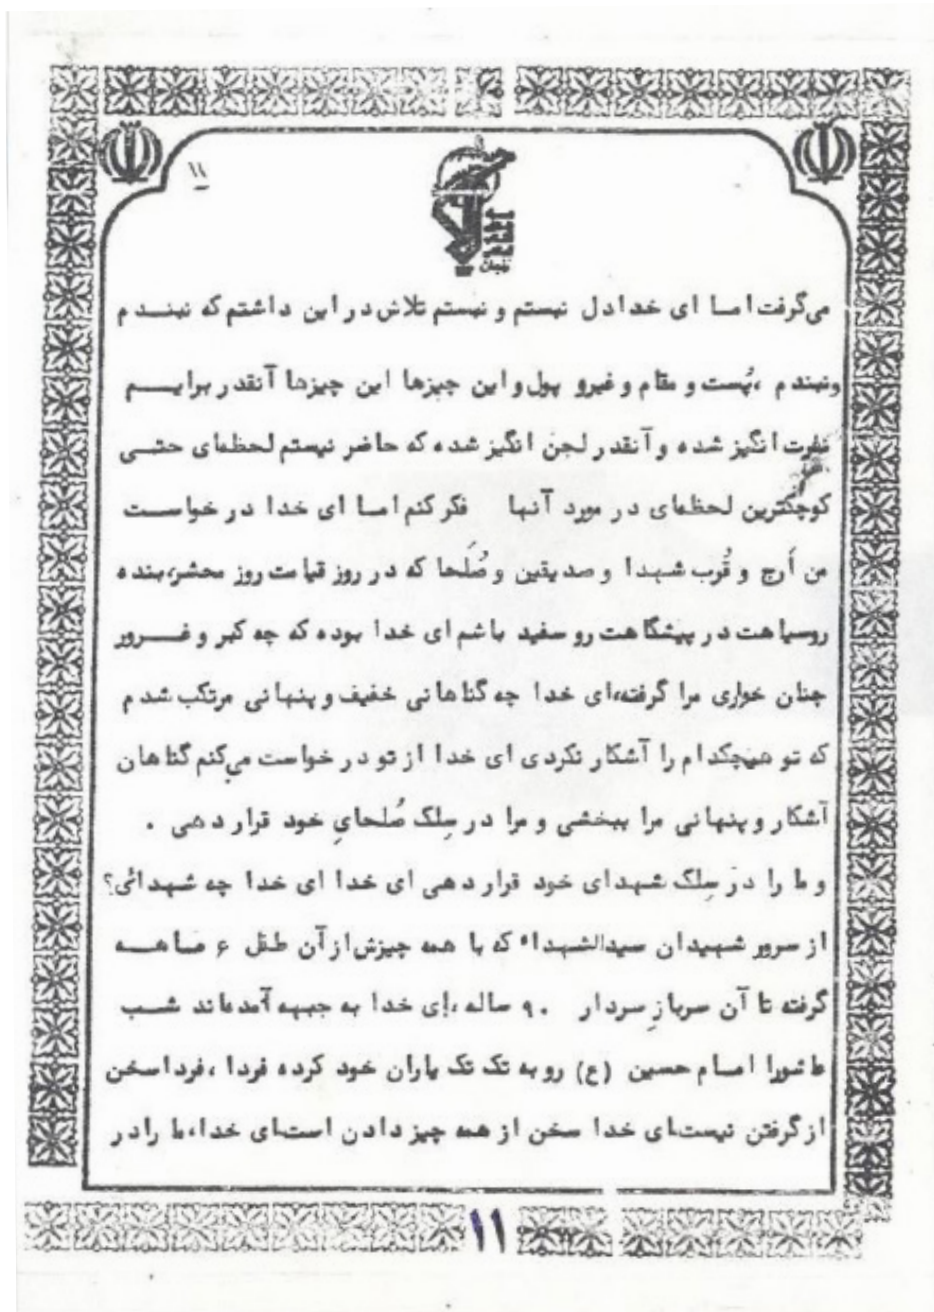 ۱۱
می‌گرفت اما ای خدا دل نبستم و نبستم تلاش در این داشتم که نبندم
ونبندم ،پُست و مقام و غیرو پول و این چیزها این چیزها آنقدر برایم
نفرت انگیز شده و آنقدر لجن انگیز شده که حاضر نیستم لحظه‌ای حتی
کوچکترین لحظه‌ای در مورد آنها فکر کنم اما ای خدا در خواست
من اَرج و قُرب شهدا و صدیقین و صُلَحا که در روز قیامت روز محشر،بنده
روسیاهت در پیشگاهت رو سفید باشم ای خدا بوده که چه کبر و غرور
چنان خواری مرا گرفته،ای خدا چه گناهانی خفیف و پنهانی مرتکب شدم
که تو هیچکدام را آشکار نکردی ای خدا از تو در خواست می‌کنم گناهان
آشکار و پنهانی مرا ببخشی و مرا در سِلک صُلحایِ خود قرار دهی .
و ما را در سِلک شهدای خود قرار دهی ای خدا ای خدا چه شهدائی؟
از سرور شهیدان سیدالشهداء که با همه چیزش از آن طفل ۶ ماهه
گرفته تا آن سربازِ سردار ۹۰ ساله ،اِی خدا به جبهه آمده‌اند شب
عاشورا امام حسین (ع) رو به تک تک یاران خود کرده فردا ،فردا سخن
از گرفتن نیست‌ای خدا سخن از همه چیز دادن است‌ای خدا،ما را در
۱۱